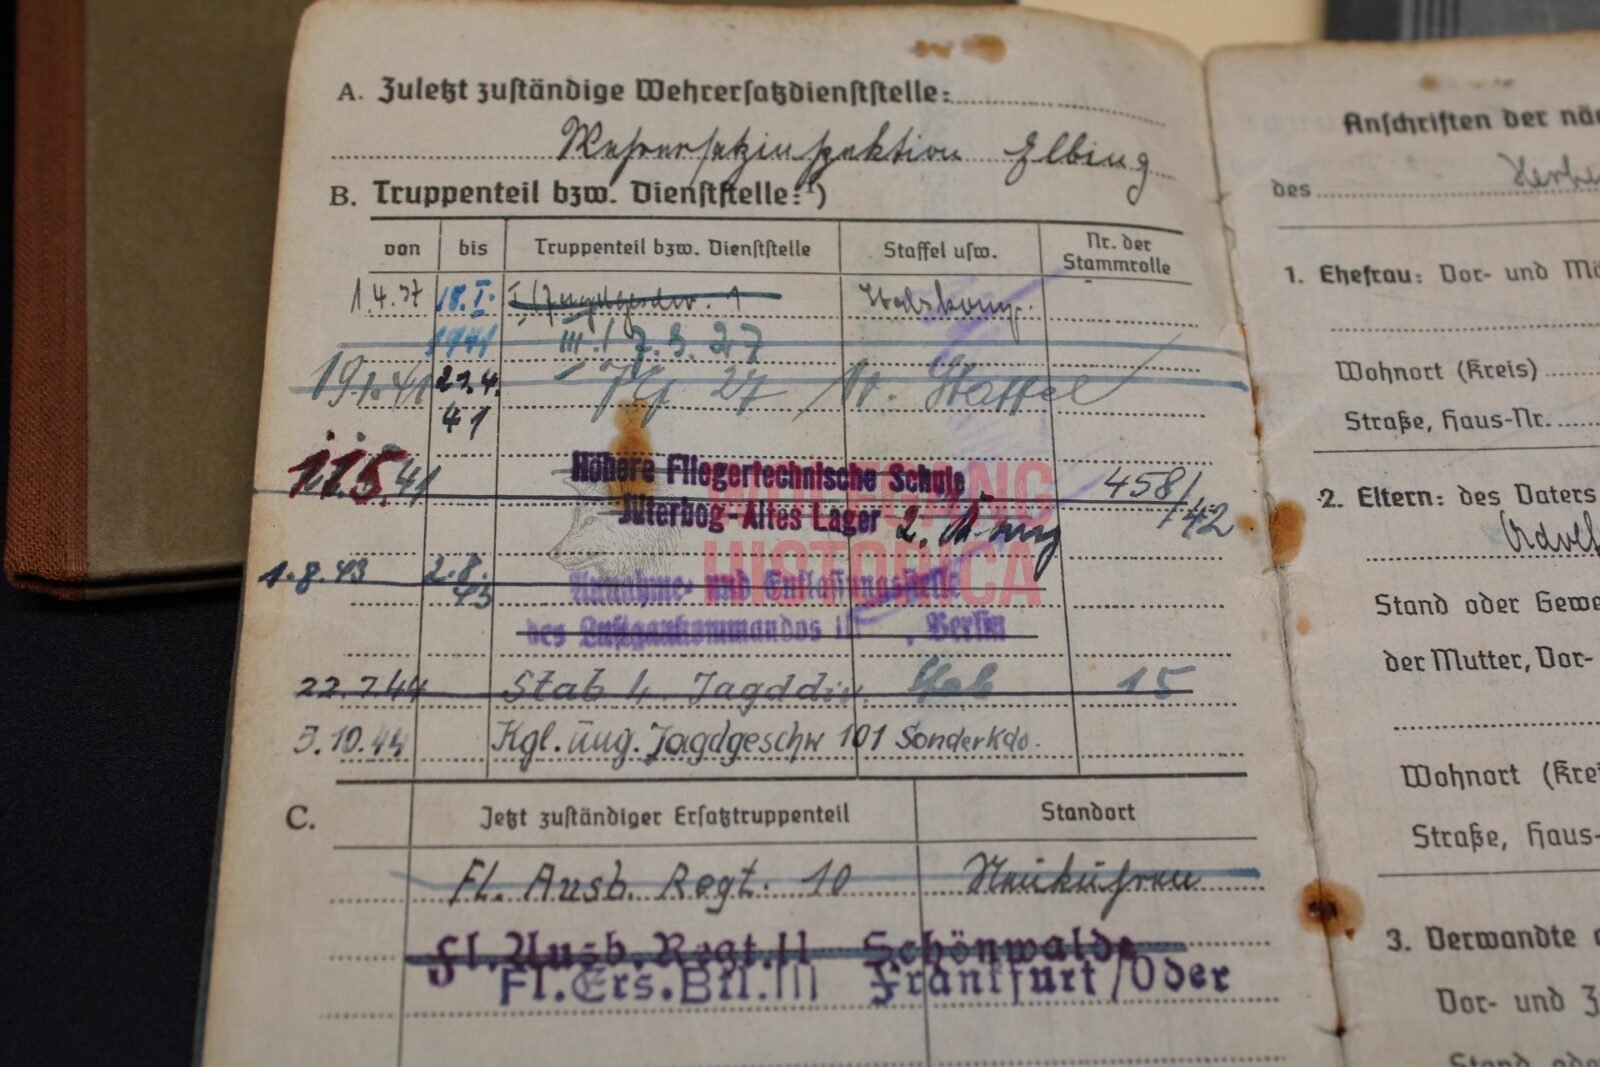 A. Zuletzt zuständige Wehrersatzdienststelle:
Wehrersatzinspektion Elbing
B. Truppenteil bzw. Dienststelle:¹)
von bis Truppenteil bzw. Dienststelle Staffel usw. Nr. der Stammrolle
1.4.37 18.I. I./Jagdgeschw. 1 Stabskomp.
1941 III./J.G. 27
19.1.41 21.4. JG 27 Staffel
41
1.5.41 Höhere Fliegertechnische Schule 458/42
Jüterbog-Altes Lager 2.
1.8.43 2.8. Annahme- und Entlassungsstelle
43
des Luftgaukommandos III, Berlin
22.7.44 Stab 4. Jagddiv. Stab 15
5.10.44 Kgl. ung. Jagdgeschw 101 Sonderkdo.
C. Jetzt zuständiger Ersatztruppenteil Standort
Fl. Ausb. Regt. 10 Neukuhren
Fl. Ausb. Regt. 11 Schönwalde
Fl. Ers. Btl. III Frankfurt/Oder
WOLFGANG
HISTORICA
Anschriften der
des
1. Ehefrau: Vor- und
Wohnort (Kreis)
Straße, Haus-Nr.
2. Eltern: des Vaters
Stand oder
der Mutter, Vor-
Wohnort
Straße, Haus-
3. Verwandte
Vor- und
Stand